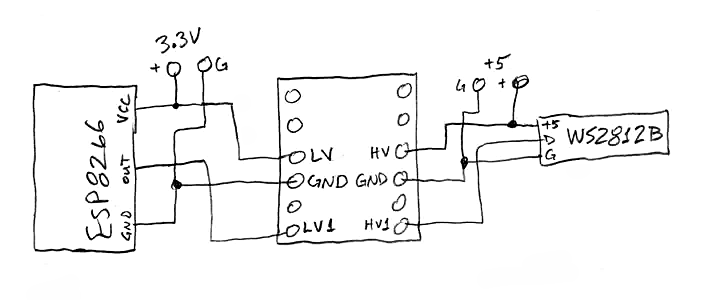 3.3V
+ G
+5
G +
ESP8266
VCC
OUT
GND
LV HV
GND GND
LV1 HV1
+5
D
G
WS2812B